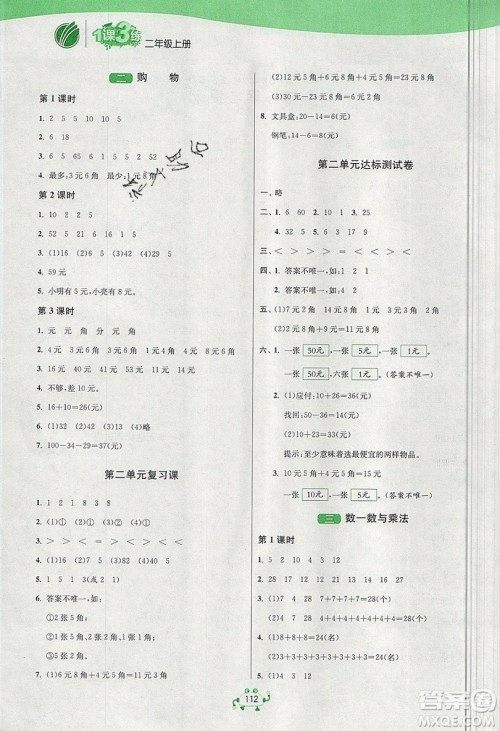 1课3练 二年级上册
二 购 物
第1课时
1. 2 5 5 10 5
2. 6 18
3. 6 5 5 1 6 5 5 2 52
4. 最多,3元6角 最少,1元8角
第2课时
2. 52 5 21 6 19 7 6 5
3. (1)16 (2)30 (3)16
4. 59元
5. 小明有5元,小亮有8元。
第3课时
1. 元 元 角 分 元 角
2. 4元 6元 8角 1元 4元 4角 9角
3. 16元 40元 41元 85元 14元
4. 不够,差10元
5. 16+10=26(元)
6. (1)32 (2)40 (3)42 (4)略
7. 100-34-29=37(元)
第二单元复习课
1. 50 20 52 81
2. (1)① (2)① (3)② (4)②
3. > > > > = >
4. (1)16 (2)4 5 (3)24
5. 1 5 1 3(或2 1)
6. 答案不唯一,如:
①2张5角
②1张5角,3张1角
①1张5角
②5张1角
7. (1)8元6角+6元=14元6角
(2)12元6角+6元=18元6角
(3)30元-12元6角=17元4角
8. 文具盒:20-14=6(元)
钢笔:14-6=8(元)
第二单元达标测试卷
一、略
二、1. 6 60 2. 10 5 20
3. 1 4. 32 5. 6 3 17 9
三、< > > > = >
四、1. 答案不唯一,如:1 2 1
2. 答案不唯一,如:6
五、(1)7元 2元4角 4元8角
(2)7元+4元8角=11元8角
六、1. 一张 50元 ,一张 5元 ,一张 1元 。
一张 50元 ,六张 1元 。(答案不唯一)
2. (1)应付:10+26=36(元)
找回:50-36=14(元)
(2)10+13=23(元)
提示:至少意味着选最便宜的两样物品。
3. 10元5角-5元=5元5角
一张 10元 ,一张 5元 。(答案不唯一)
三 数一数与乘法
第1课时
1. 5 2 10 4 3 12
2. 28 17 12 16 21 13
3. (1)4 7 28 7+7+7+7=28(个)
(2)7 4 28 4+4+4+4+4+4+4=28(个)
4. (1)8+8+8=24(名)
(2)8+8+8=24(名)
5. (1)4 3 12
112